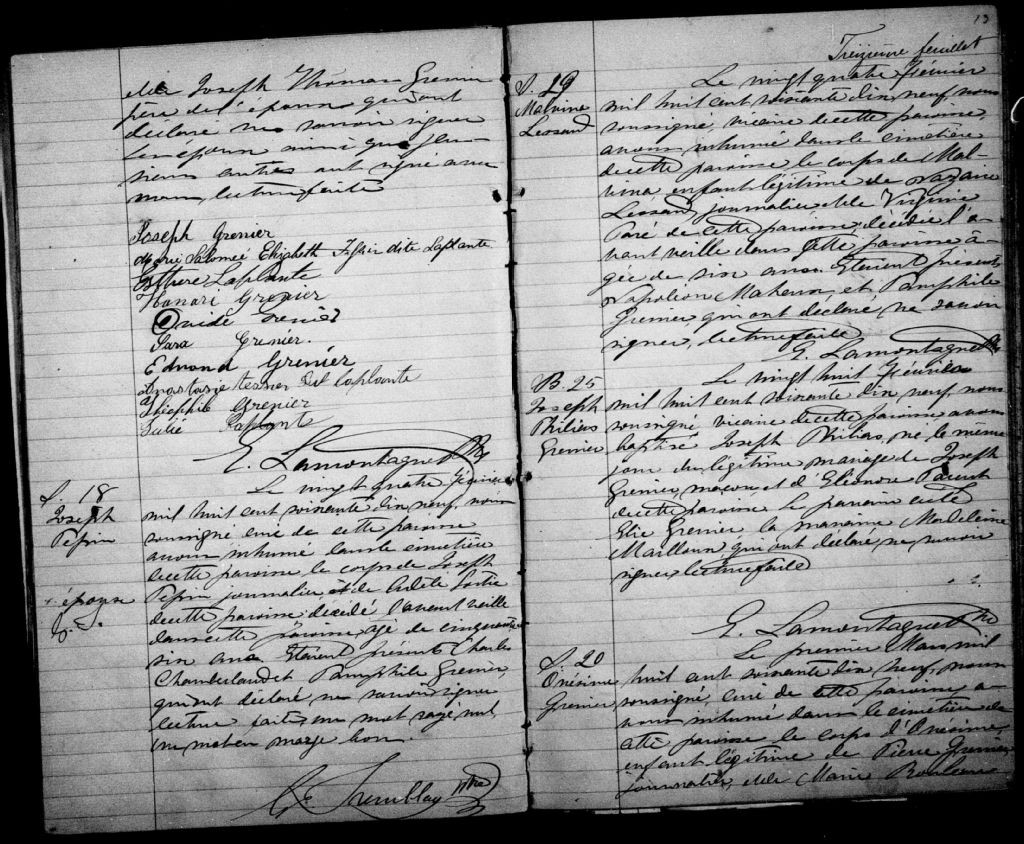 et de Joseph Thomas Grenier
père de l'épouse qui ont
déclaré ne savoir signer
Les époux ainsi que plu-
sieurs autres ont signé avec
nous, lecture faite
Joseph Grenier
Marie Salomée Elizabeth dite Laplante
Esthere Laplante
Honoré Grenier
Ovide Grenier
Sara Grenier.
Edmond Grenier
Anastasie tessier Laplante
Théophile Grenier
Julie Laplante
E. Lamontagne Ptre
S. 18
Joseph
Pepin
+ épouse
Le vingt quatre Février
mil huit cent soixante dix neuf, nous
soussigné curé de cette paroisse
avons inhumé dans le cimetière
de cette paroisse le corps de Joseph
Pepin journalier et de Adèle Sortie
de cette paroisse décédé l'avant veille
dans cette paroisse agé de cinquante
six ans. Etaient présents Charles
Chamberland et Pamphile Grenier,
qui ont déclaré ne savoir signer
lecture faite, un mot rayé nul
un mot en marge bon.
G. Tremblay Ptre
13
Treizième feuillet
S. 19
Malvina
Lessard
Le vingt quatre Février
mil huit cent soixante dix neuf, nous
soussigné, vicaire de cette paroisse,
avons inhumé dans le cimetière
de cette paroisse le corps de Mal-
vina enfant légitime de Nazaire
Lessard, journalier et de Virginie
Paré de cette paroisse, décédée l'a-
vant veille dans cette paroisse â-
gée de six ans. Etaient présents
Napoléon Maheux et Pamphile
Grenier qui ont déclaré ne savoir
signer, lecture faite
E. Lamontagne Ptre
B. 25
Joseph
Philias
Grenier
Le vingt huit Février
mil huit cent soixante dix neuf, nous
soussigné vicaire de cette paroisse avons
baptisé Joseph Philias, né le même
jour du légitime mariage de Joseph
Grenier, maçon, et d'Eléonore Parent
de cette paroisse. Le parrain a été
Elie Grenier la marraine Madeleine
Mailloux qui ont déclaré ne savoir
signer, lecture faite
E. Lamontagne Ptre
S. 20
Onésime
Grenier
Le premier Mars mil
huit cent soixante dix neuf, nous
soussigné, curé de cette paroisse, a-
vons inhumé dans le cimetière de
cette paroisse le corps d'Onésime
enfant légitime de Pierre Grenier
journalier, et de Marie